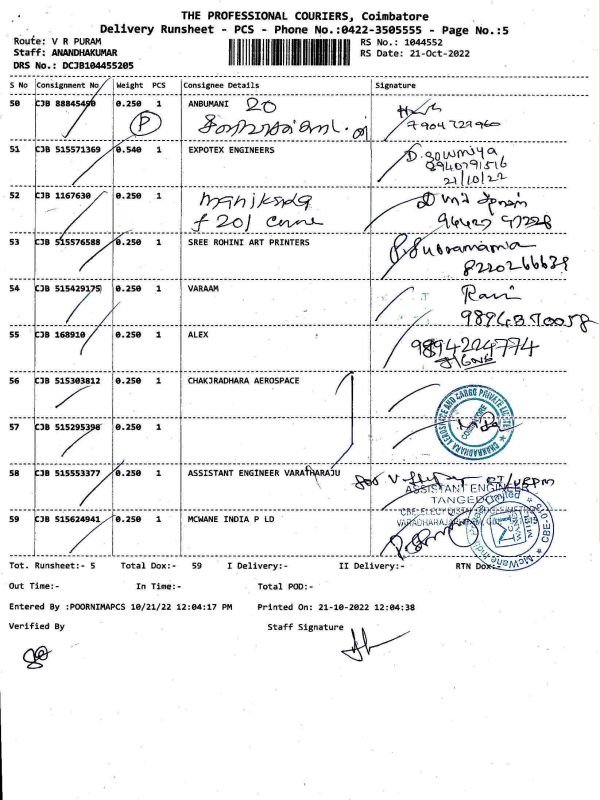 THE PROFESSIONAL COURIERS, Coimbatore
Delivery Runsheet - PCS - Phone No.:0422-3505555 - Page No.:5
Route: V R PURAM
RS No.: 1044552
Staff: ANANDHAKUMAR
RS Date: 21-Oct-2022
DRS No.: DCJB104455205
S No Consignment No Weight PCS Consignee Details Signature
50 CJB 88845490 0.250 1 ANBUMANI 20
P
7904722960
51 CJB 515571369 0.540 1 EXPOTEX ENGINEERS D. Sowmiya
8940791516
21/10/22
52 CJB 1167630 0.250 1
F 201
53 CJB 515576588 0.250 1 SREE ROHINI ART PRINTERS P. Subramania
8220266639
54 CJB 515429175 0.250 1 VARAAM Ravi
9894370058
55 CJB 168910 0.250 1 ALEX 9894224774
56 CJB 515303812 0.250 1 CHAKJRADHARA AEROSPACE
CHAKRADHARA AEROSPACE AND CARGO PRIVATE LIMITED
COIMBATORE
57 CJB 515295398 0.250 1
58 CJB 515553377 0.250 1 ASSISTANT ENGINEER VARATHARAJU
ASSISTANT ENGINEER
TANGEDCO
59 CJB 515624941 0.250 1 MCWANE INDIA P LD
McWane India Private Limited * CBE-015 *
Tot. Runsheet:- 5 Total Dox:- 59 I Delivery:- II Delivery:- RTN Dox:-
Out Time:- In Time:- Total POD:-
Entered By :POORNIMAPCS 10/21/22 12:04:17 PM Printed On: 21-10-2022 12:04:38
Verified By Staff Signature